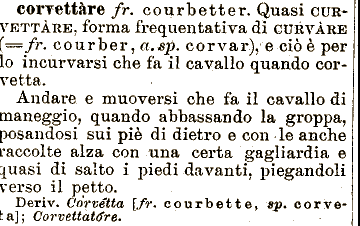 corvettàre fr. courbetter. Quasi CUR-
VETTÀRE, forma frequentativa di CURVÀRE
(=fr. courber, a. sp. corvar), e ciò è per
lo incurvarsi che fa il cavallo quando cor-
vetta.
Andare e muoversi che fa il cavallo di
maneggio, quando abbassando la groppa,
posandosi sui piè di dietro e con le anche
raccolte alza con una certa gagliardia e
quasi di salto i piedi davanti, piegandoli
verso il petto.
Deriv. Corvétta [fr. courbette, sp. corve-
ta]; Corvettatóre.